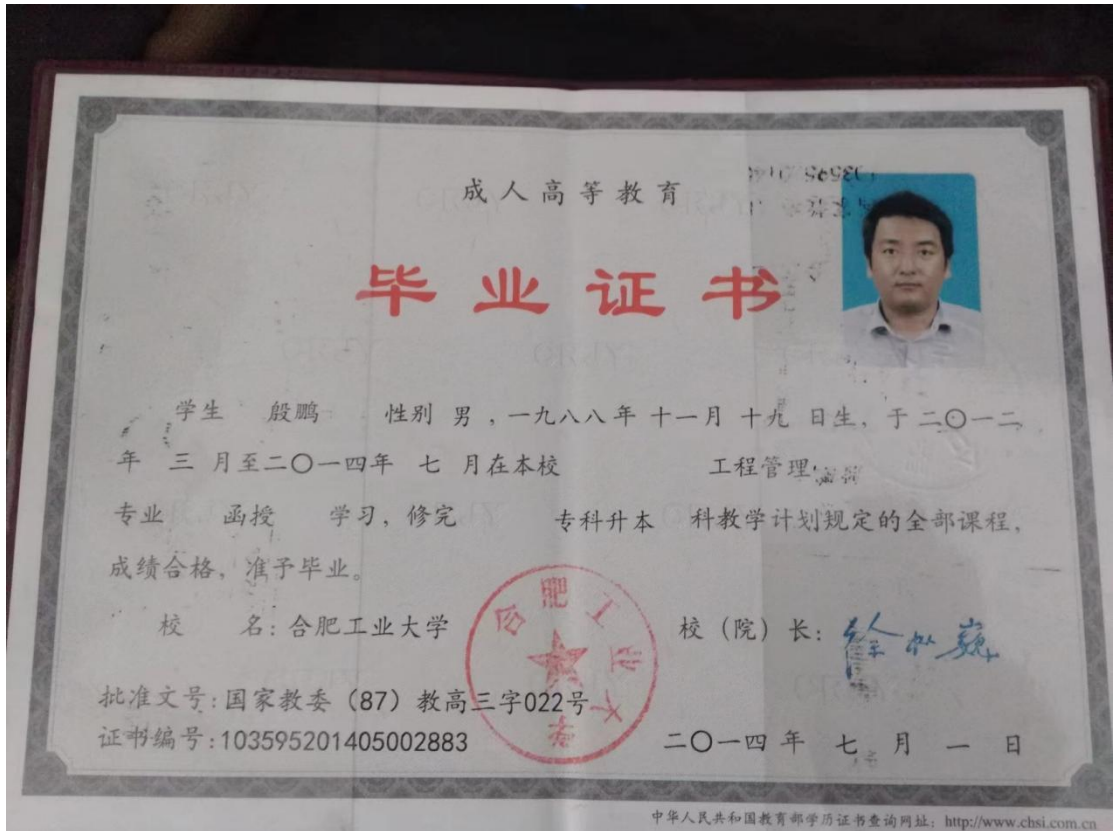 成人高等教育
毕业证书
学生 殷鹏 性别 男 ,一九八八年 十一月 十九 日生, 于二〇一二
年 三 月至二〇一四年 七 月在本校 工程管理
专业 函授 学习, 修完 专科升本 科教学计划规定的全部课程,
成绩合格, 准予毕业。
校 名: 合肥工业大学 校（院）长: 徐枞巍
合肥工业大学
批准文号:国家教委（87）教高三字022号
证书编号:103595201405002883 二〇一四 年 七 月 一 日
中华人民共和国教育部学历证书查询网址: http://www.chsi.com.cn